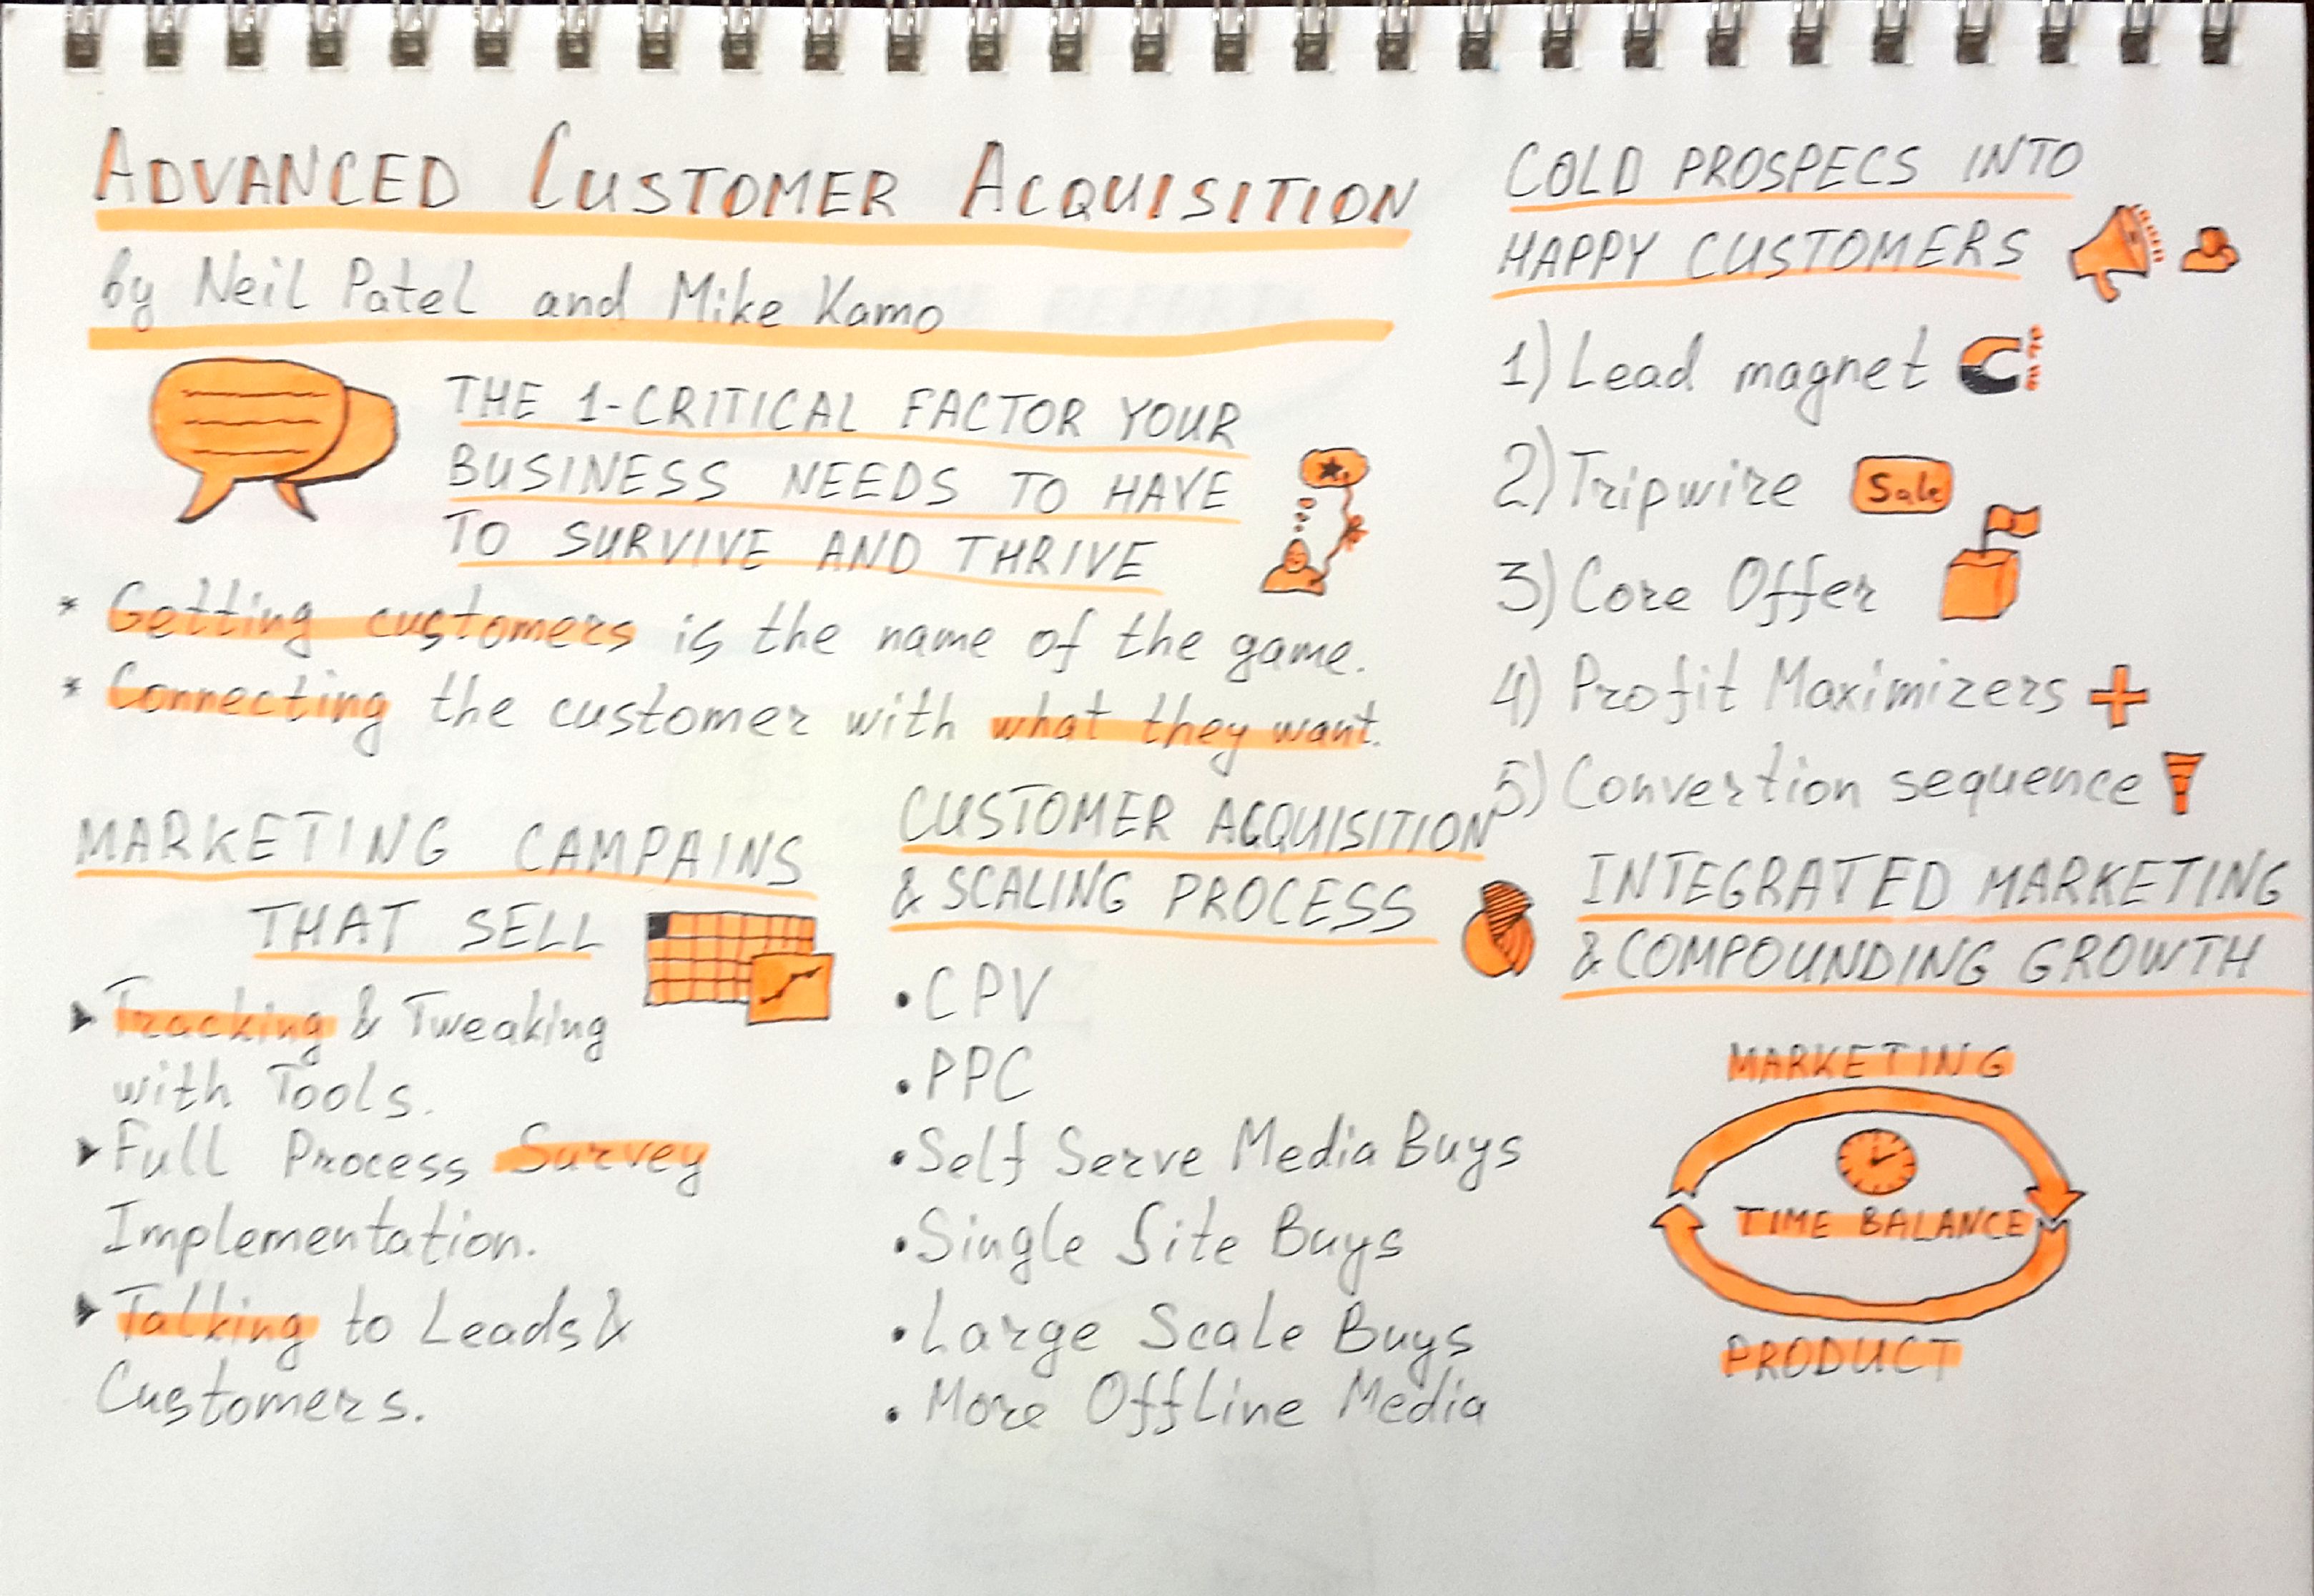 ADVANCED CUSTOMER ACQUISITION
by Neil Patel and Mike Kamo
THE 1-CRITICAL FACTOR YOUR
BUSINESS NEEDS TO HAVE
TO SURVIVE AND THRIVE
* Getting customers is the name of the game.
* Connecting the customer with what they want.
MARKETING CAMPAINS
THAT SELL
▸ Tracking & Tweaking
with Tools.
▸ Full Process Survey
Implementation.
▸ Talking to Leads &
Customers.
CUSTOMER ACQUISITION
& SCALING PROCESS
• CPV
• PPC
• Self Serve Media Buys
• Single Site Buys
• Large Scale Buys
• More Offline Media
COLD PROSPECS INTO
HAPPY CUSTOMERS
1) Lead magnet
2) Tripwire Sale
3) Core Offer
4) Profit Maximizers
5) Convertion sequence
INTEGRATED MARKETING
& COMPOUNDING GROWTH
MARKETING
TIME BALANCE
PRODUCT